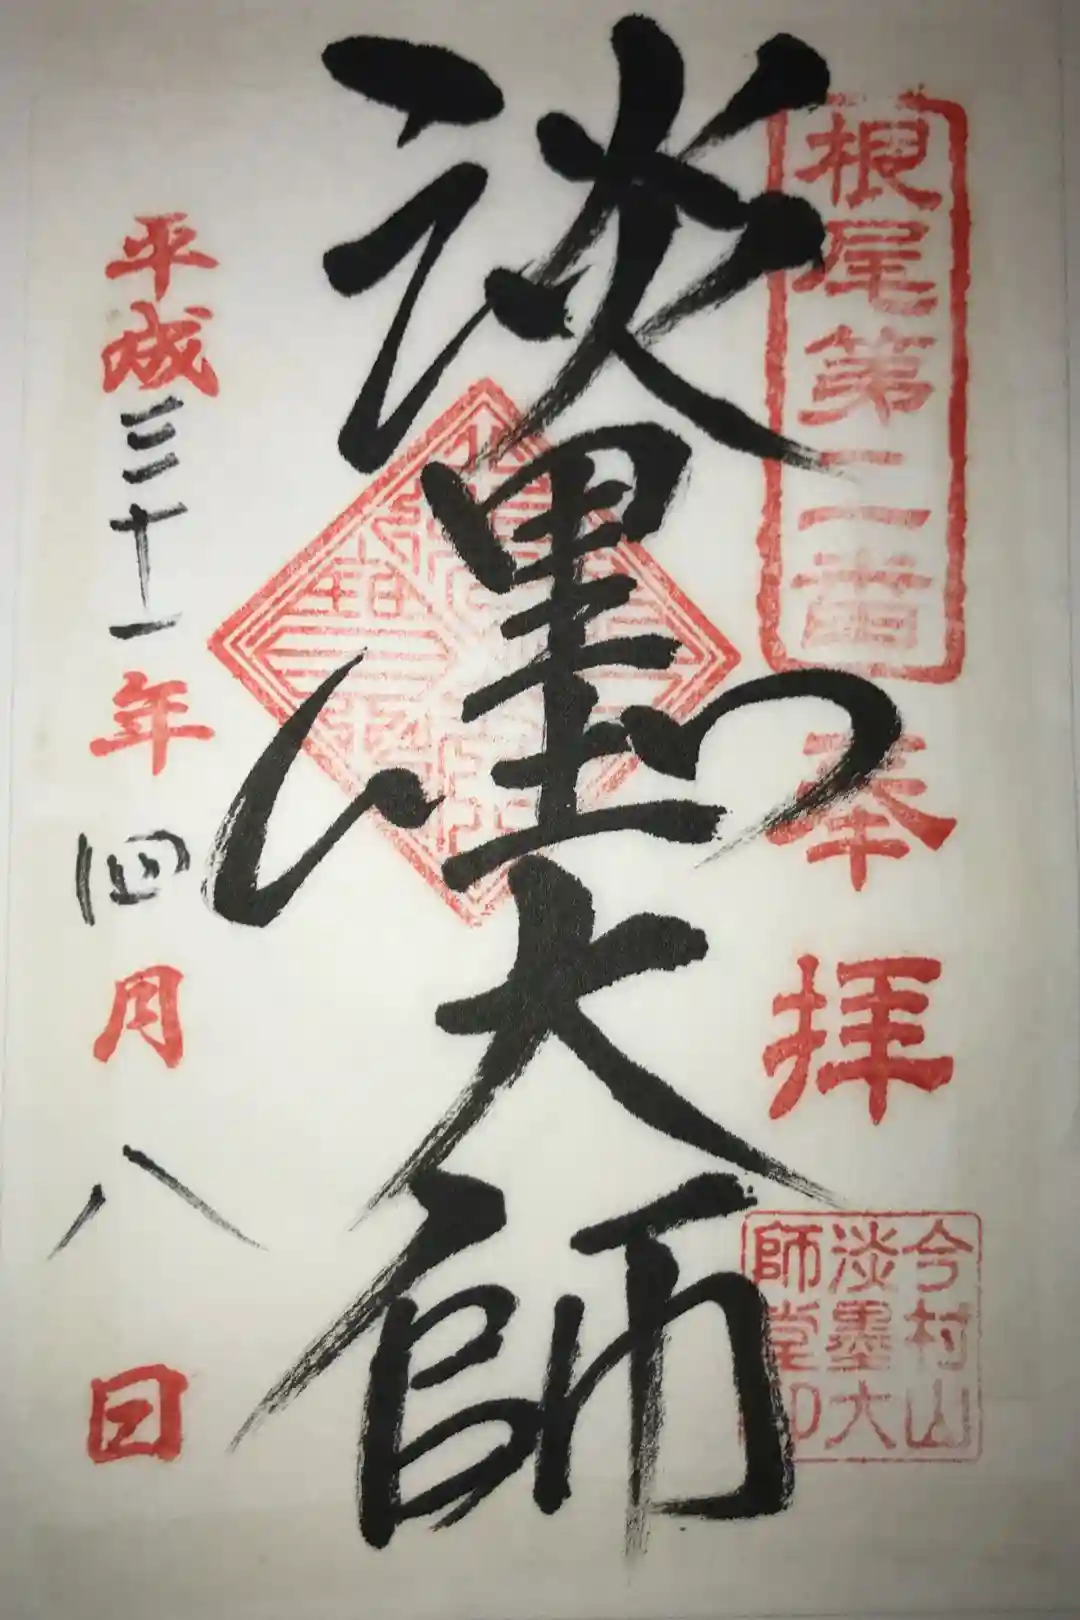 根尾第二番
奉拝
今村山
淡墨大
師堂印
淡墨大師
平成三十一年四月八日